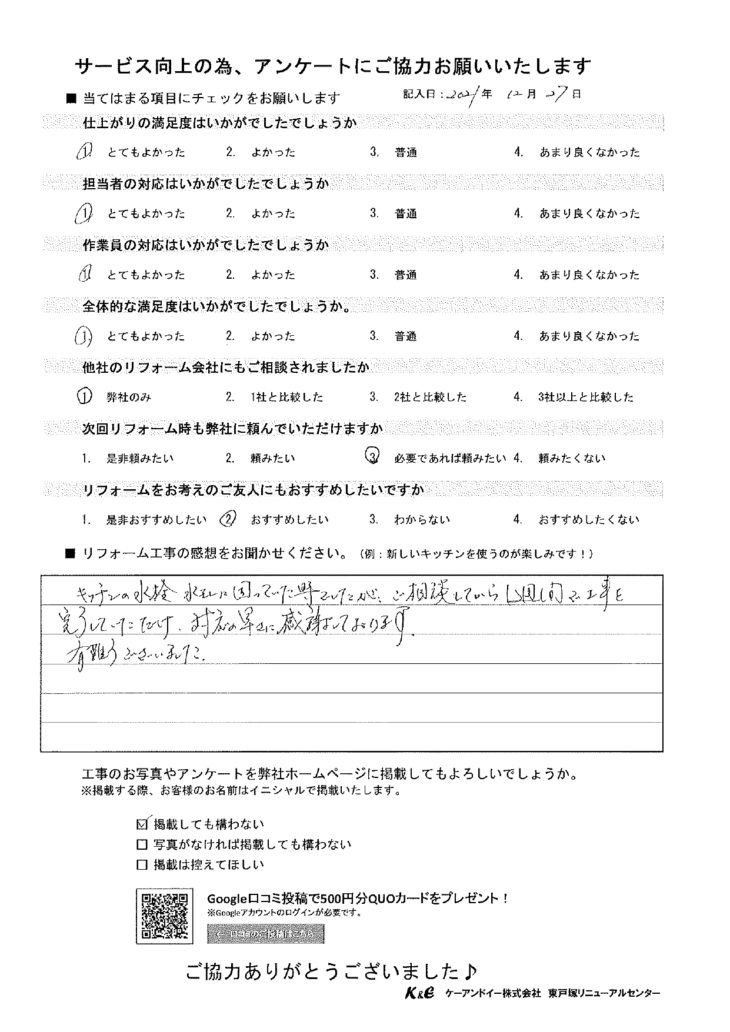 サービス向上の為、アンケートにご協力お願いいたします
■ 当てはまる項目にチェックをお願いします 記入日：2021年 12月 27日
仕上がりの満足度はいかがでしたでしょうか
1. とてもよかった 2. よかった 3. 普通 4. あまり良くなかった
担当者の対応はいかがでしたでしょうか
1. とてもよかった 2. よかった 3. 普通 4. あまり良くなかった
作業員の対応はいかがでしたでしょうか
1. とてもよかった 2. よかった 3. 普通 4. あまり良くなかった
全体的な満足度はいかがでしたでしょうか。
1. とてもよかった 2. よかった 3. 普通 4. あまり良くなかった
他社のリフォーム会社にもご相談されましたか
1 弊社のみ 2. 1社と比較した 3. 2社と比較した 4. 3社以上と比較した
次回リフォーム時も弊社に頼んでいただけますか
1. 是非頼みたい 2. 頼みたい 3 必要であれば頼みたい 4. 頼みたくない
リフォームをお考えのご友人にもおすすめしたいですか
1. 是非おすすめしたい 2 おすすめしたい 3. わからない 4. おすすめしたくない
■ リフォーム工事の感想をお聞かせください。（例：新しいキッチンを使うのが楽しみです！）
キッチンの水栓 水もれに困っていた時でしたが、ご相談してから1週間で工事を
完了していただけ、対応の早さに感謝しております。
有難うございました。
工事のお写真やアンケートを弊社ホームページに掲載してもよろしいでしょうか。
※掲載する際、お客様のお名前はイニシャルで掲載いたします。
☑ 掲載しても構わない
□ 写真がなければ掲載しても構わない
□ 掲載は控えてほしい
Google口コミ投稿で500円分QUOカードをプレゼント！
※Googleアカウントのログインが必要です。
← 口コミのご投稿はこちら
ご協力ありがとうございました♪
K&E ケーアンドイー株式会社 東戸塚リニューアルセンター